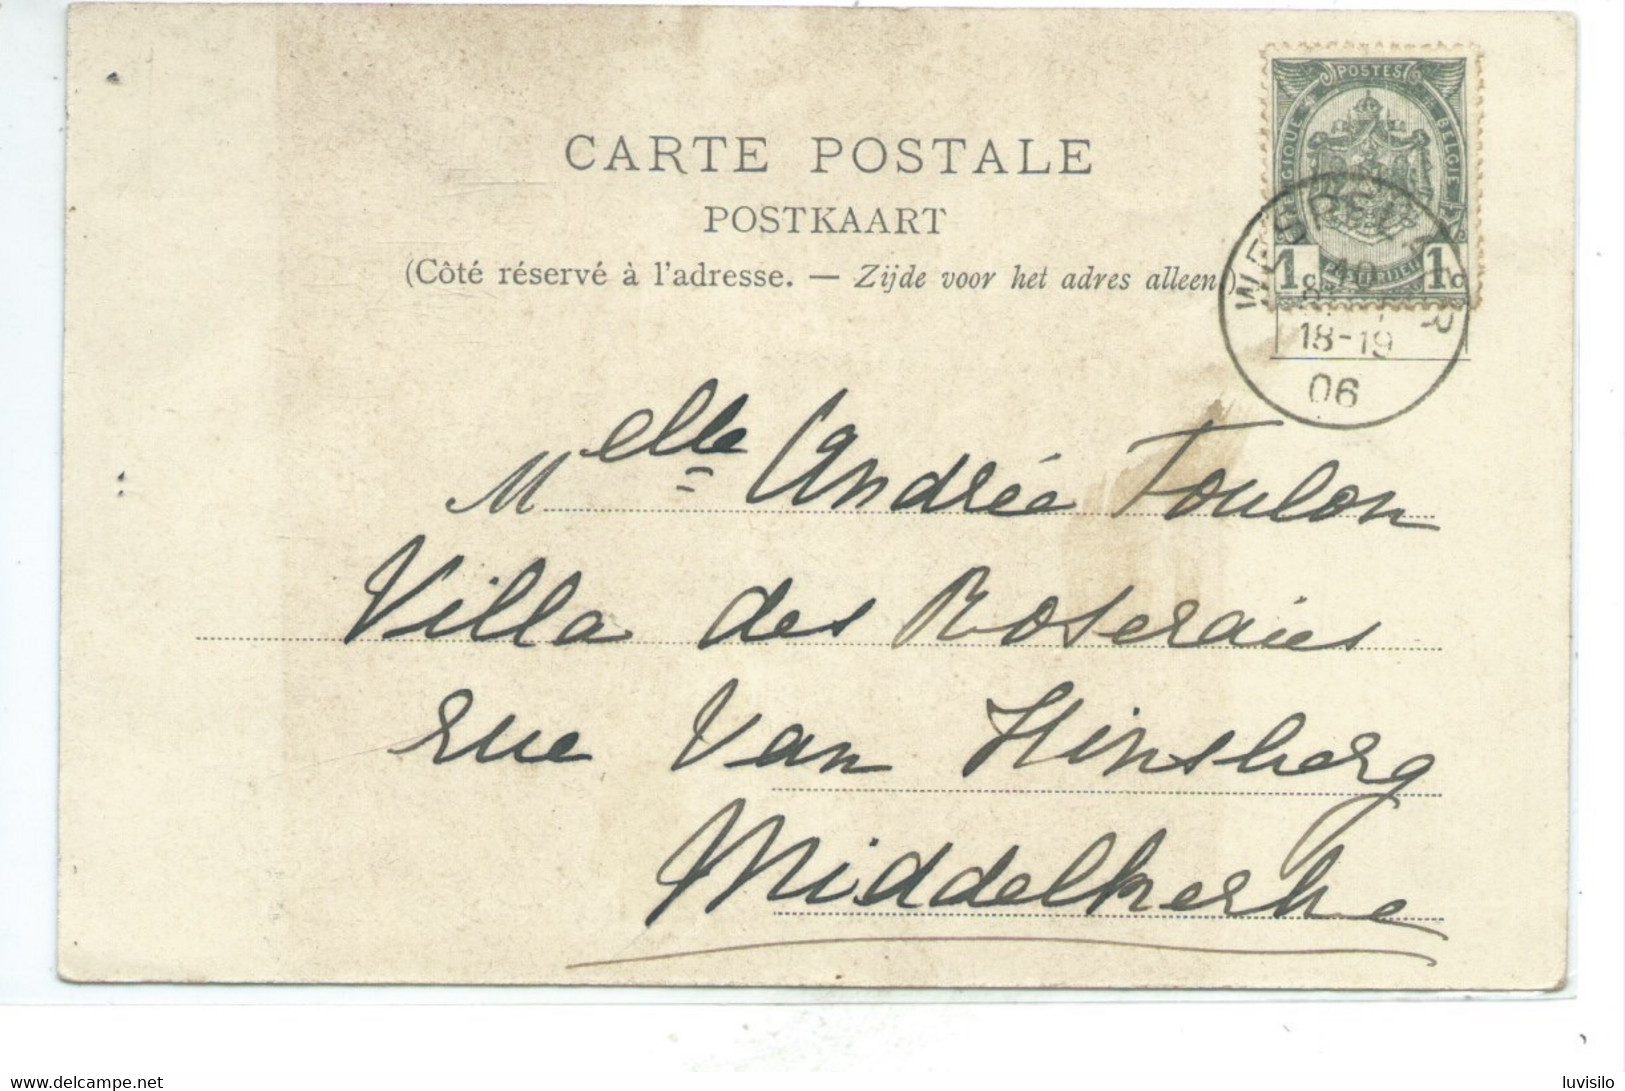 CARTE POSTALE
POSTKAART
(Côté réservé à l'adresse. — Zijde voor het adres alleen.)
POSTES
BELGIQUE
BELGIE
1c
1c
WESPELAER
18-19
06
Melle Andrée Toulon
Villa des Roseraies
rue Van Hinsberg
Middelkerke
http://www.delcampe.net
luvisilo